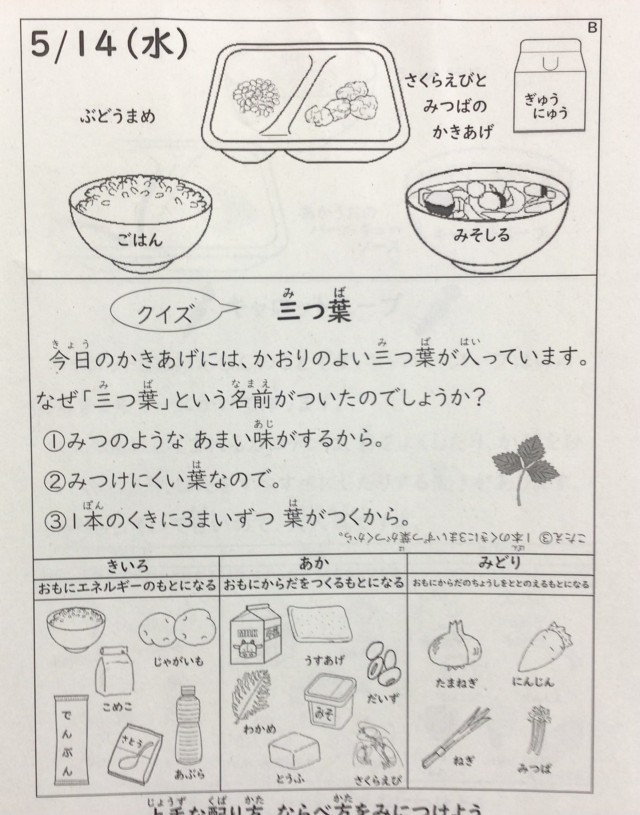 5/14(水)
B
ぶどうまめ
さくらえびと
みつばの
かきあげ
ぎゅう
にゅう
ごはん
みそしる
クイズ
三つ葉
今日のかきあげには、かおりのよい三つ葉が入っています。
なぜ「三つ葉」という名前がついたのでしょうか？
①みつのような あまい味がするから。
②みつけにくい葉なので。
③1本のくきに3まいずつ 葉がつくから。
こたえ③ 1本のくきに3まいずつ葉がつくから。
きいろ
あか
みどり
おもにエネルギーのもとになる
おもにからだをつくるもとになる
おもにからだのちょうしをととのえるもとになる
じゃがいも
こめこ
でんぷん
さとう
あぶら
MILK
うすあげ
だいず
わかめ
みそ
とうふ
さくらえび
たまねぎ
にんじん
ねぎ
みつば
上手な配り方、ならべ方をみにつけよう